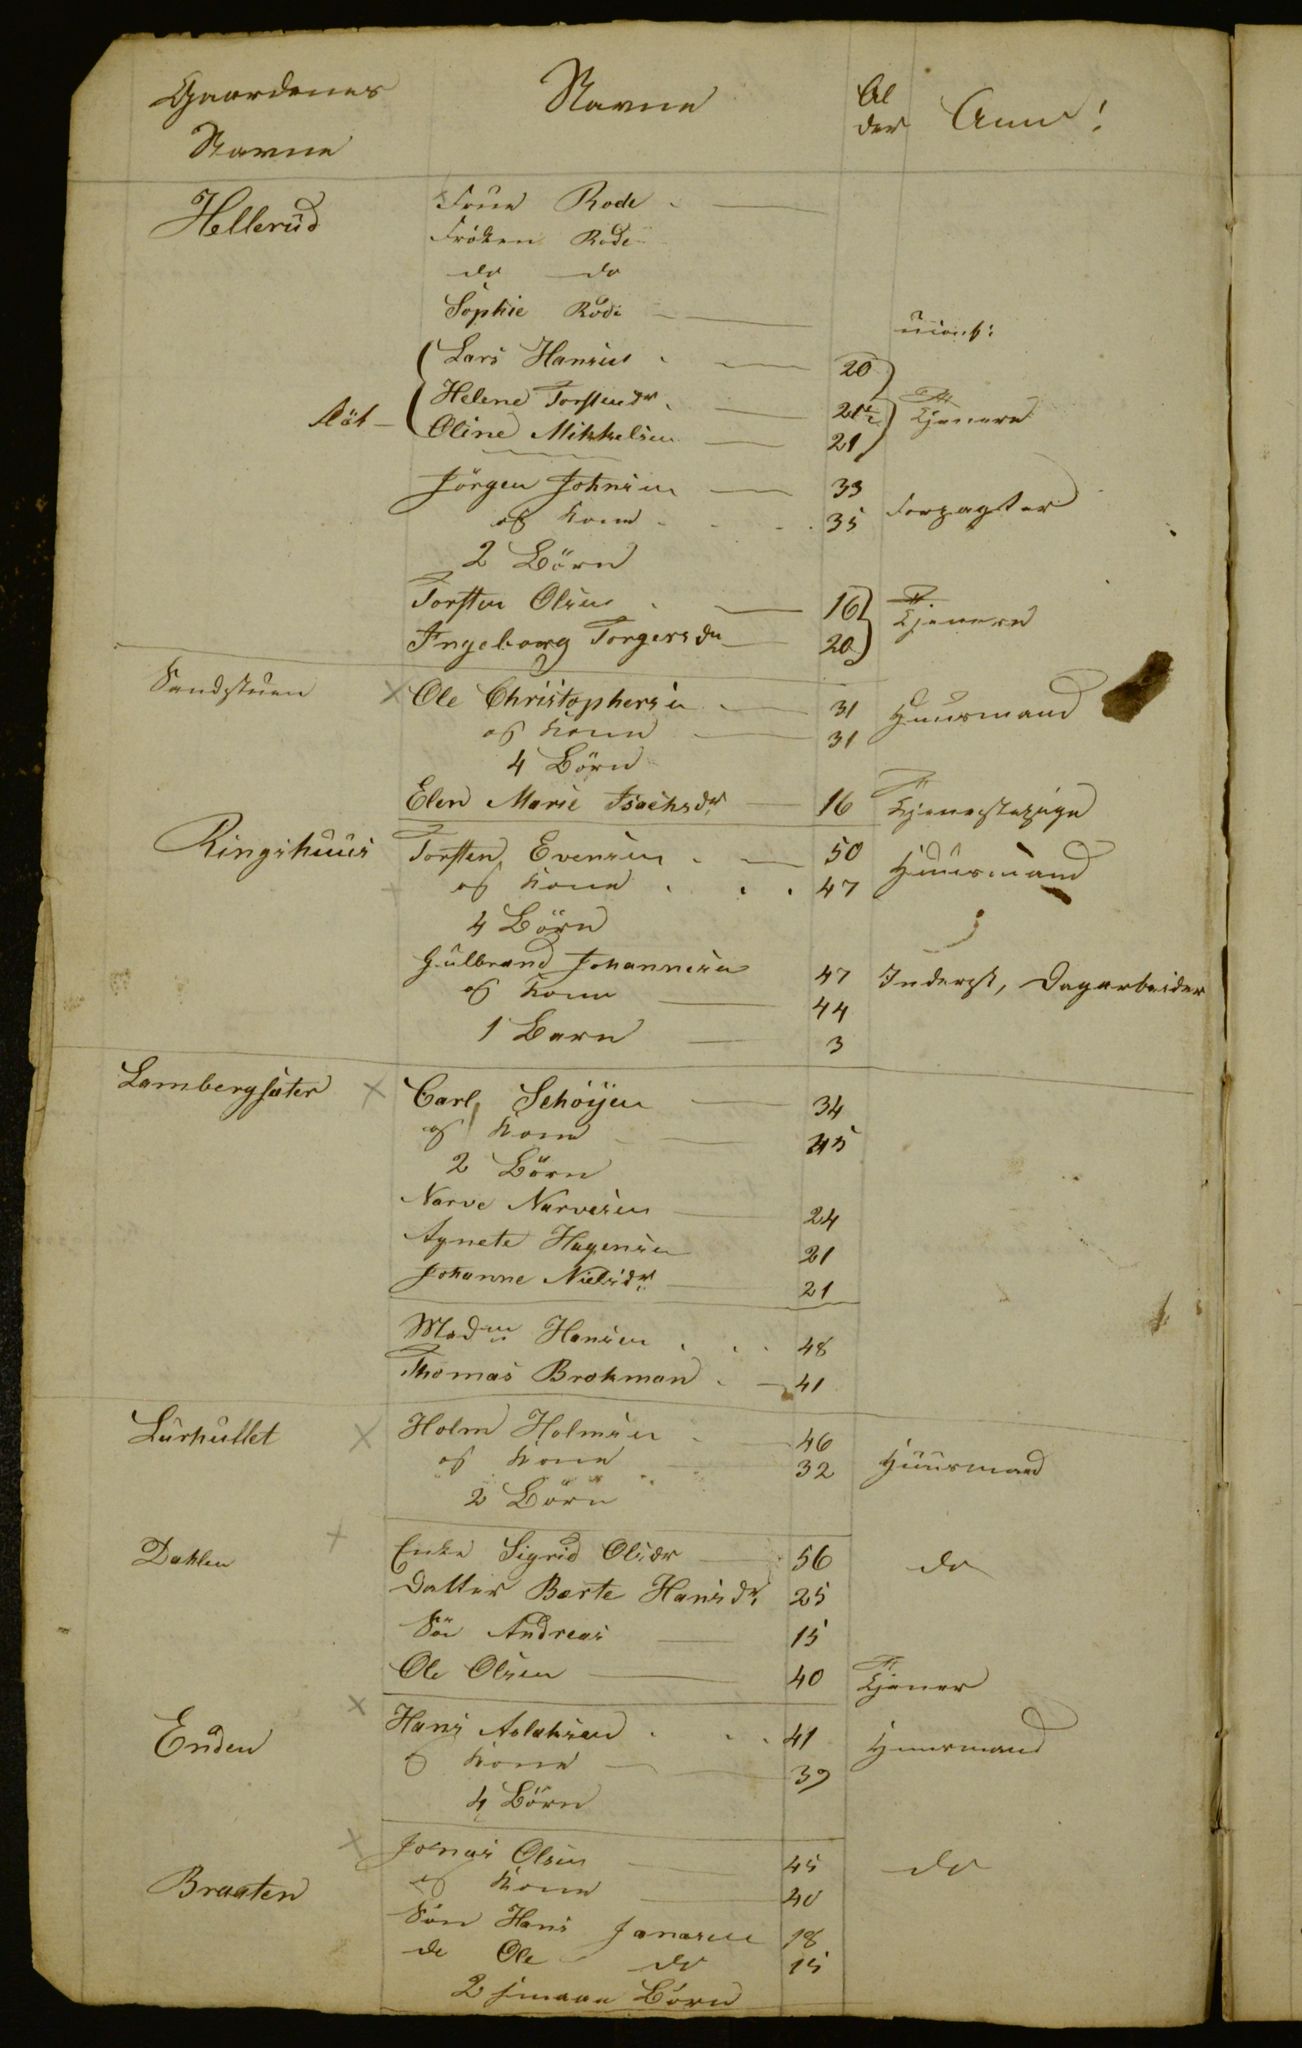 Gaardenes Navne | Navne | Al der | Anm!
Hellerud | Frue Rode
Frøken Rode
do do
Sophie Rode
Lars Hansen | 20
Helene Torstensdr | 21½ | Tjenere
Oline Mikkelsen | 21
Jörgen Johnsen | 33 | Forpagter
og Kone | 35
2 Börn
Torsten Olsen | 16 | Tjenere
Ingeborg Torgersdr | 20
Sandstuen | Ole Christophersen | 31 | Huusmand
og Kone | 31
4 Börn
Elen Marie Isachsdr | 16 | Tjenestepige
Ringshuus | Torsten Evensen | 50 | Huusmand
og Kone | 47
4 Börn
Gulbrand Johannesen | 47 | Inderst, Dagarbeider
og Kone | 44
1 Barn | 3
Lambergsæter | Carl Schöyen | 34
og Kone | 45
2 Börn
Narve Narvesen | 24
Agnete Hagensen | 21
Johanne Nielsdr | 21
Madm Hansen | 48
Thomas Brokman | 41
Lurhullet | Holm Holmsen | 46 | Huusmand
og Kone | 32
2 Börn
Dahlen | Enke Sigrid Olsdr | 56 | do
Datter Berte Hansdr | 25
Sön Andreas | 15
Ole Olsen | 40 | Tjener
Enden | Hans Aslaksen | 41 | Huusmand
og Kone | 39
4 Börn
Braaten | Jonas Olsen | 45 | do
og Kone | 40
Sön Hans Jonasen | 18
do Ole do | 15
2 smaae Börn